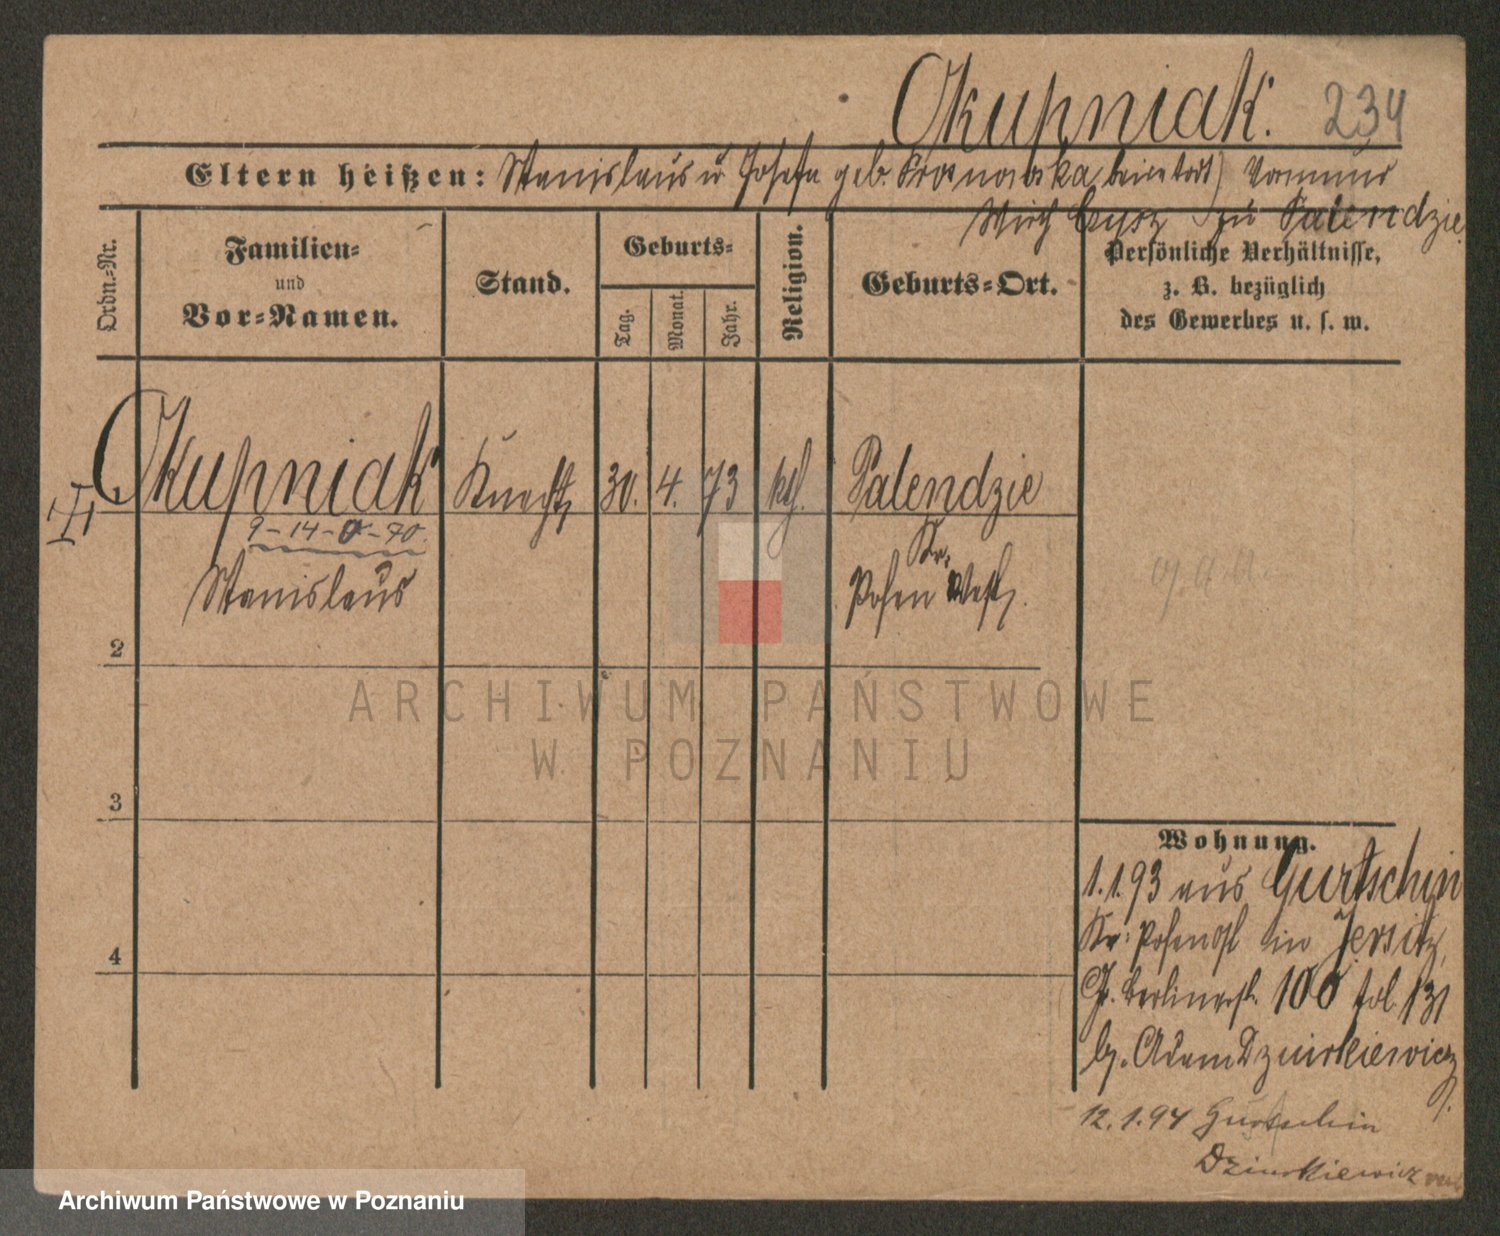 Okupniak. 234
Eltern heißen: Stanislaus u Josefa geb. Brosnowska, beide todt) Vormund
Wirth zu Palendzie
Ordn.-Nr.
Familien-
und
Vor-Namen.
Stand.
Geburts-
Tag.
Monat.
Jahr.
Religion.
Geburts-Ort.
Persönliche Verhältnisse,
z. B. bezüglich
des Gewerbes u. s. w.
Okupniak Knecht 30. 4. 73 kth. Palendzie
9-14-0-70.
Kr.
Stanislaus Posen West.
2
3
4
Wohnung.
1.1.93 aus Gurtschin
Kr: Posen Ost in Jersitz,
Gr. Berlinerstr. 100 fol. 131
by. Adam Dzinrkiewicz
12.1.94 Gurtschin
Dzinrkiewicz
ARCHIWUM PAŃSTWOWE
W POZNANIU
Archiwum Państwowe w Poznaniu